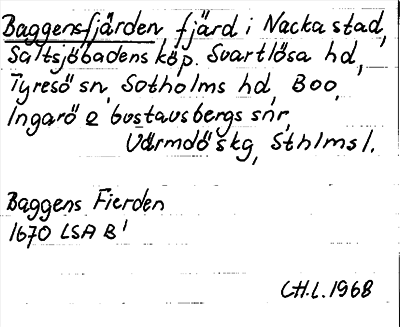 Baggensfjärden fjärd i Nacka stad,
Saltsjöbadens köp. Svartlösa hd,
Tyresö sn, Sotholms hd, Boo,
Ingarö o Gustavsbergs snr,
Värmdö skg, Sthlms l.
Baggens Fierden
1670 LSA B¹
CH.L. 1968